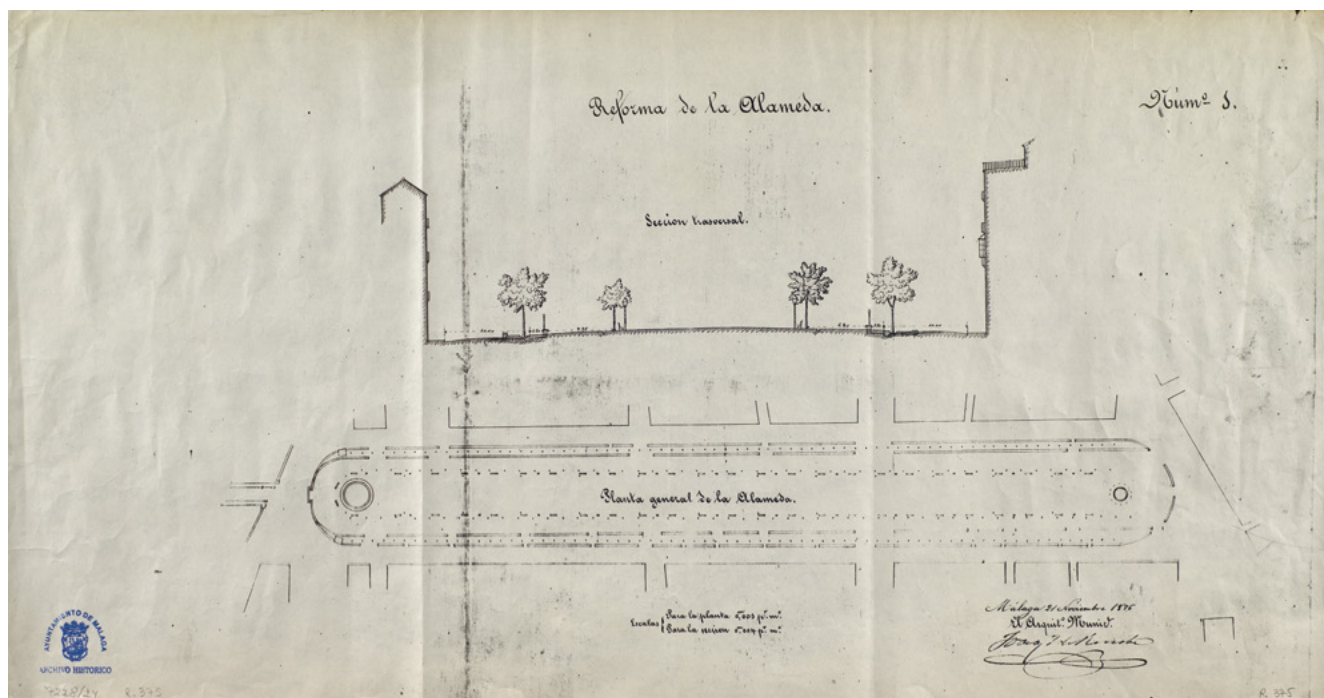 Reforma de la Alameda.
Núm.º 1.
Seccion trasversal.
Planta general de la Alameda.
Escalas
Para la planta
Para la seccion
Málaga 21 Noviembre 1876
El Arquit.º Munic.l
AYUNTAMIENTO DE MALAGA
ARCHIVO HISTORICO
R. 375
R. 375